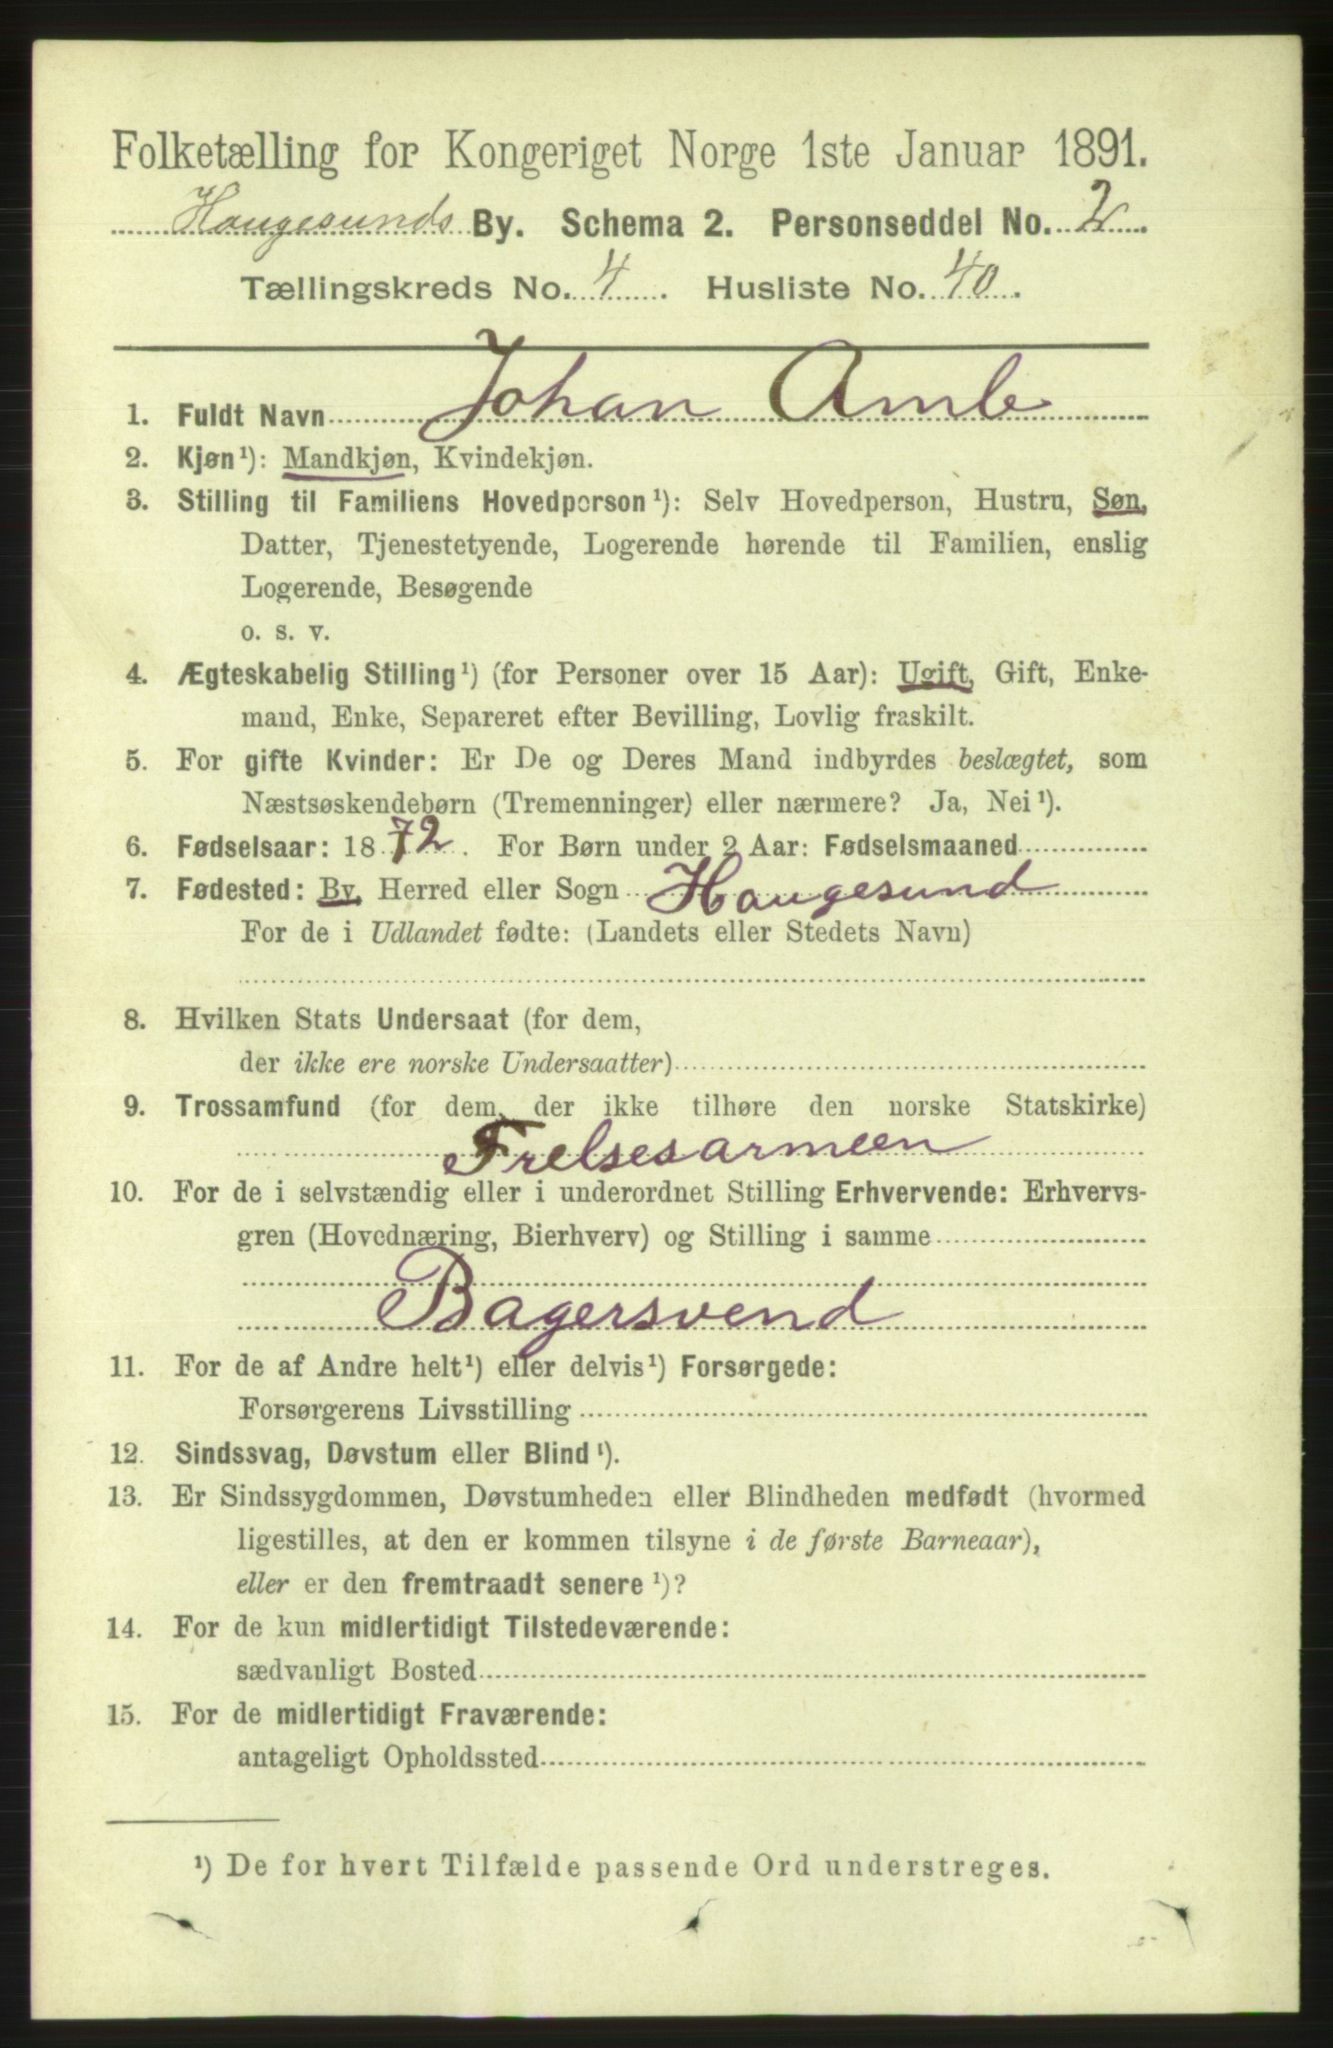 Folketælling for Kongeriget Norge 1ste Januar 1891.
Haugesunds By. Schema 2. Personseddel No. 2.
Tællingskreds No. 4. Husliste No. 40.
1. Fuldt Navn Johan Amle
2. Kjøn¹): Mandkjøn, Kvindekjøn.
3. Stilling til Familiens Hovedperson¹): Selv Hovedperson, Hustru, Søn,
Datter, Tjenestetyende, Logerende hørende til Familien, enslig
Logerende, Besøgende
o. s. v.
4. Ægteskabelig Stilling¹) (for Personer over 15 Aar): Ugift, Gift, Enke-
mand, Enke, Separeret efter Bevilling, Lovlig fraskilt.
5. For gifte Kvinder: Er De og Deres Mand indbyrdes beslægtet, som
Næstsøskendebørn (Tremenninger) eller nærmere? Ja, Nei¹).
6. Fødselsaar: 1872. For Børn under 2 Aar: Fødselsmaaned
7. Fødested: By, Herred eller Sogn Haugesund
For de i Udlandet fødte: (Landets eller Stedets Navn)
8. Hvilken Stats Undersaat (for dem,
der ikke ere norske Undersaatter)
9. Trossamfund (for dem, der ikke tilhøre den norske Statskirke)
Frelsesarmeen
10. For de i selvstændig eller i underordnet Stilling Erhvervende: Erhvervs-
gren (Hovednæring, Bierhverv) og Stilling i samme
Bagersvend
11. For de af Andre helt¹) eller delvis¹) Forsørgede:
Forsørgerens Livsstilling
12. Sindssvag, Døvstum eller Blind¹).
13. Er Sindssygdommen, Døvstumheden eller Blindheden medfødt (hvormed
ligestilles, at den er kommen tilsyne i de første Barneaar),
eller er den fremtraadt senere¹)?
14. For de kun midlertidigt Tilstedeværende:
sædvanligt Bosted
15. For de midlertidigt Fraværende:
antageligt Opholdssted
¹) De for hvert Tilfælde passende Ord understreges.